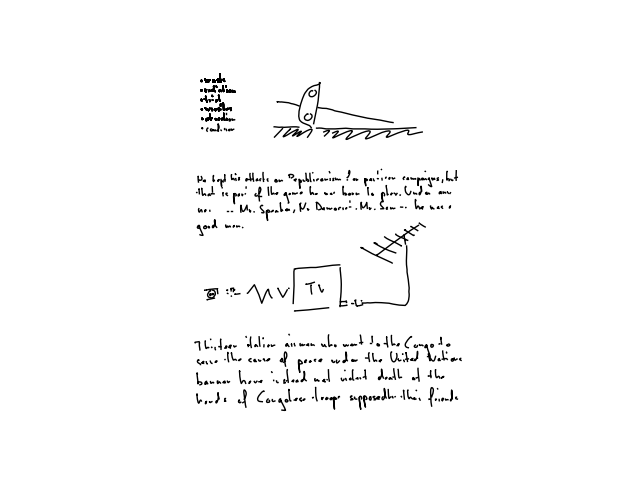 He kept his attacks on Republicanism for partisan campaigns, but
that is part of the game he was born to play. Under any
-- Mr. Speaker, Mr. Democrat, Mr. Sam -- he was a
good man.
TV
Thirteen italian airmen who went to the Congo to
serve the cause of peace under the United Nations
banner have instead met violent death at the
hands of Congolese troops supposedly their friends